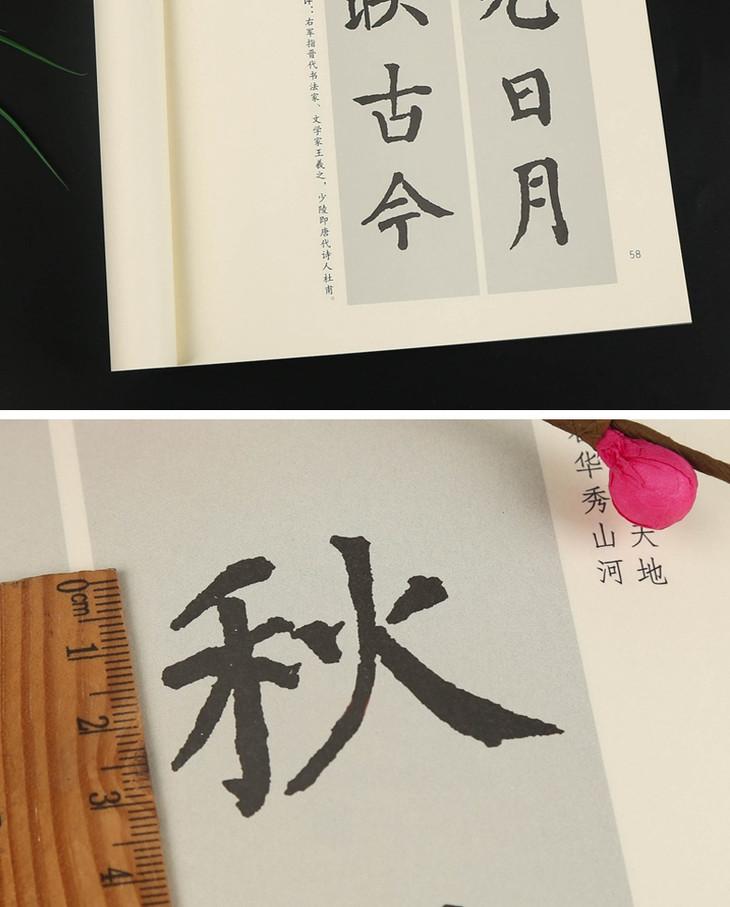 日月
古今
：右军指晋代书法家、文学家王羲之，少陵即唐代诗人杜甫。
58
秋
天地
华秀山河
0cm
1
2
3
4